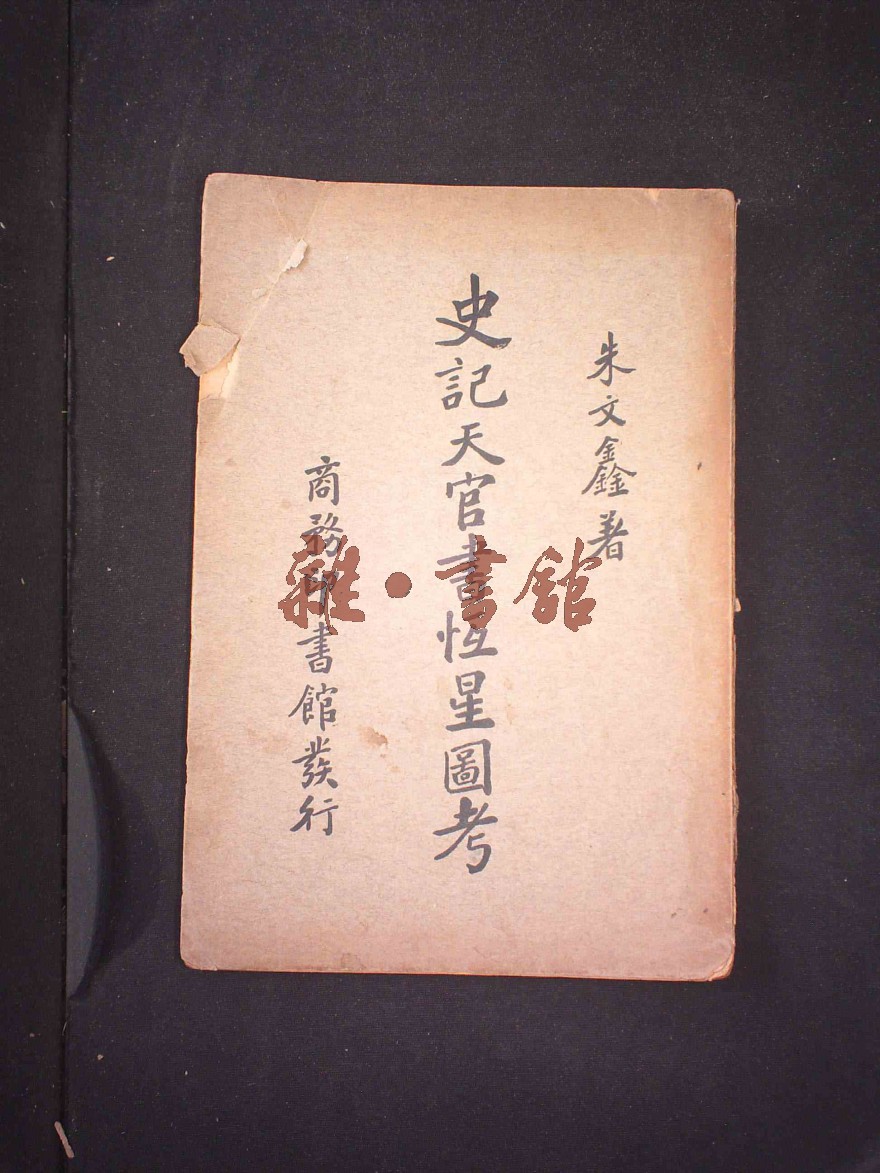 朱文鑫著
史記天官書恆星圖考
商務印書館發行
雜·書館